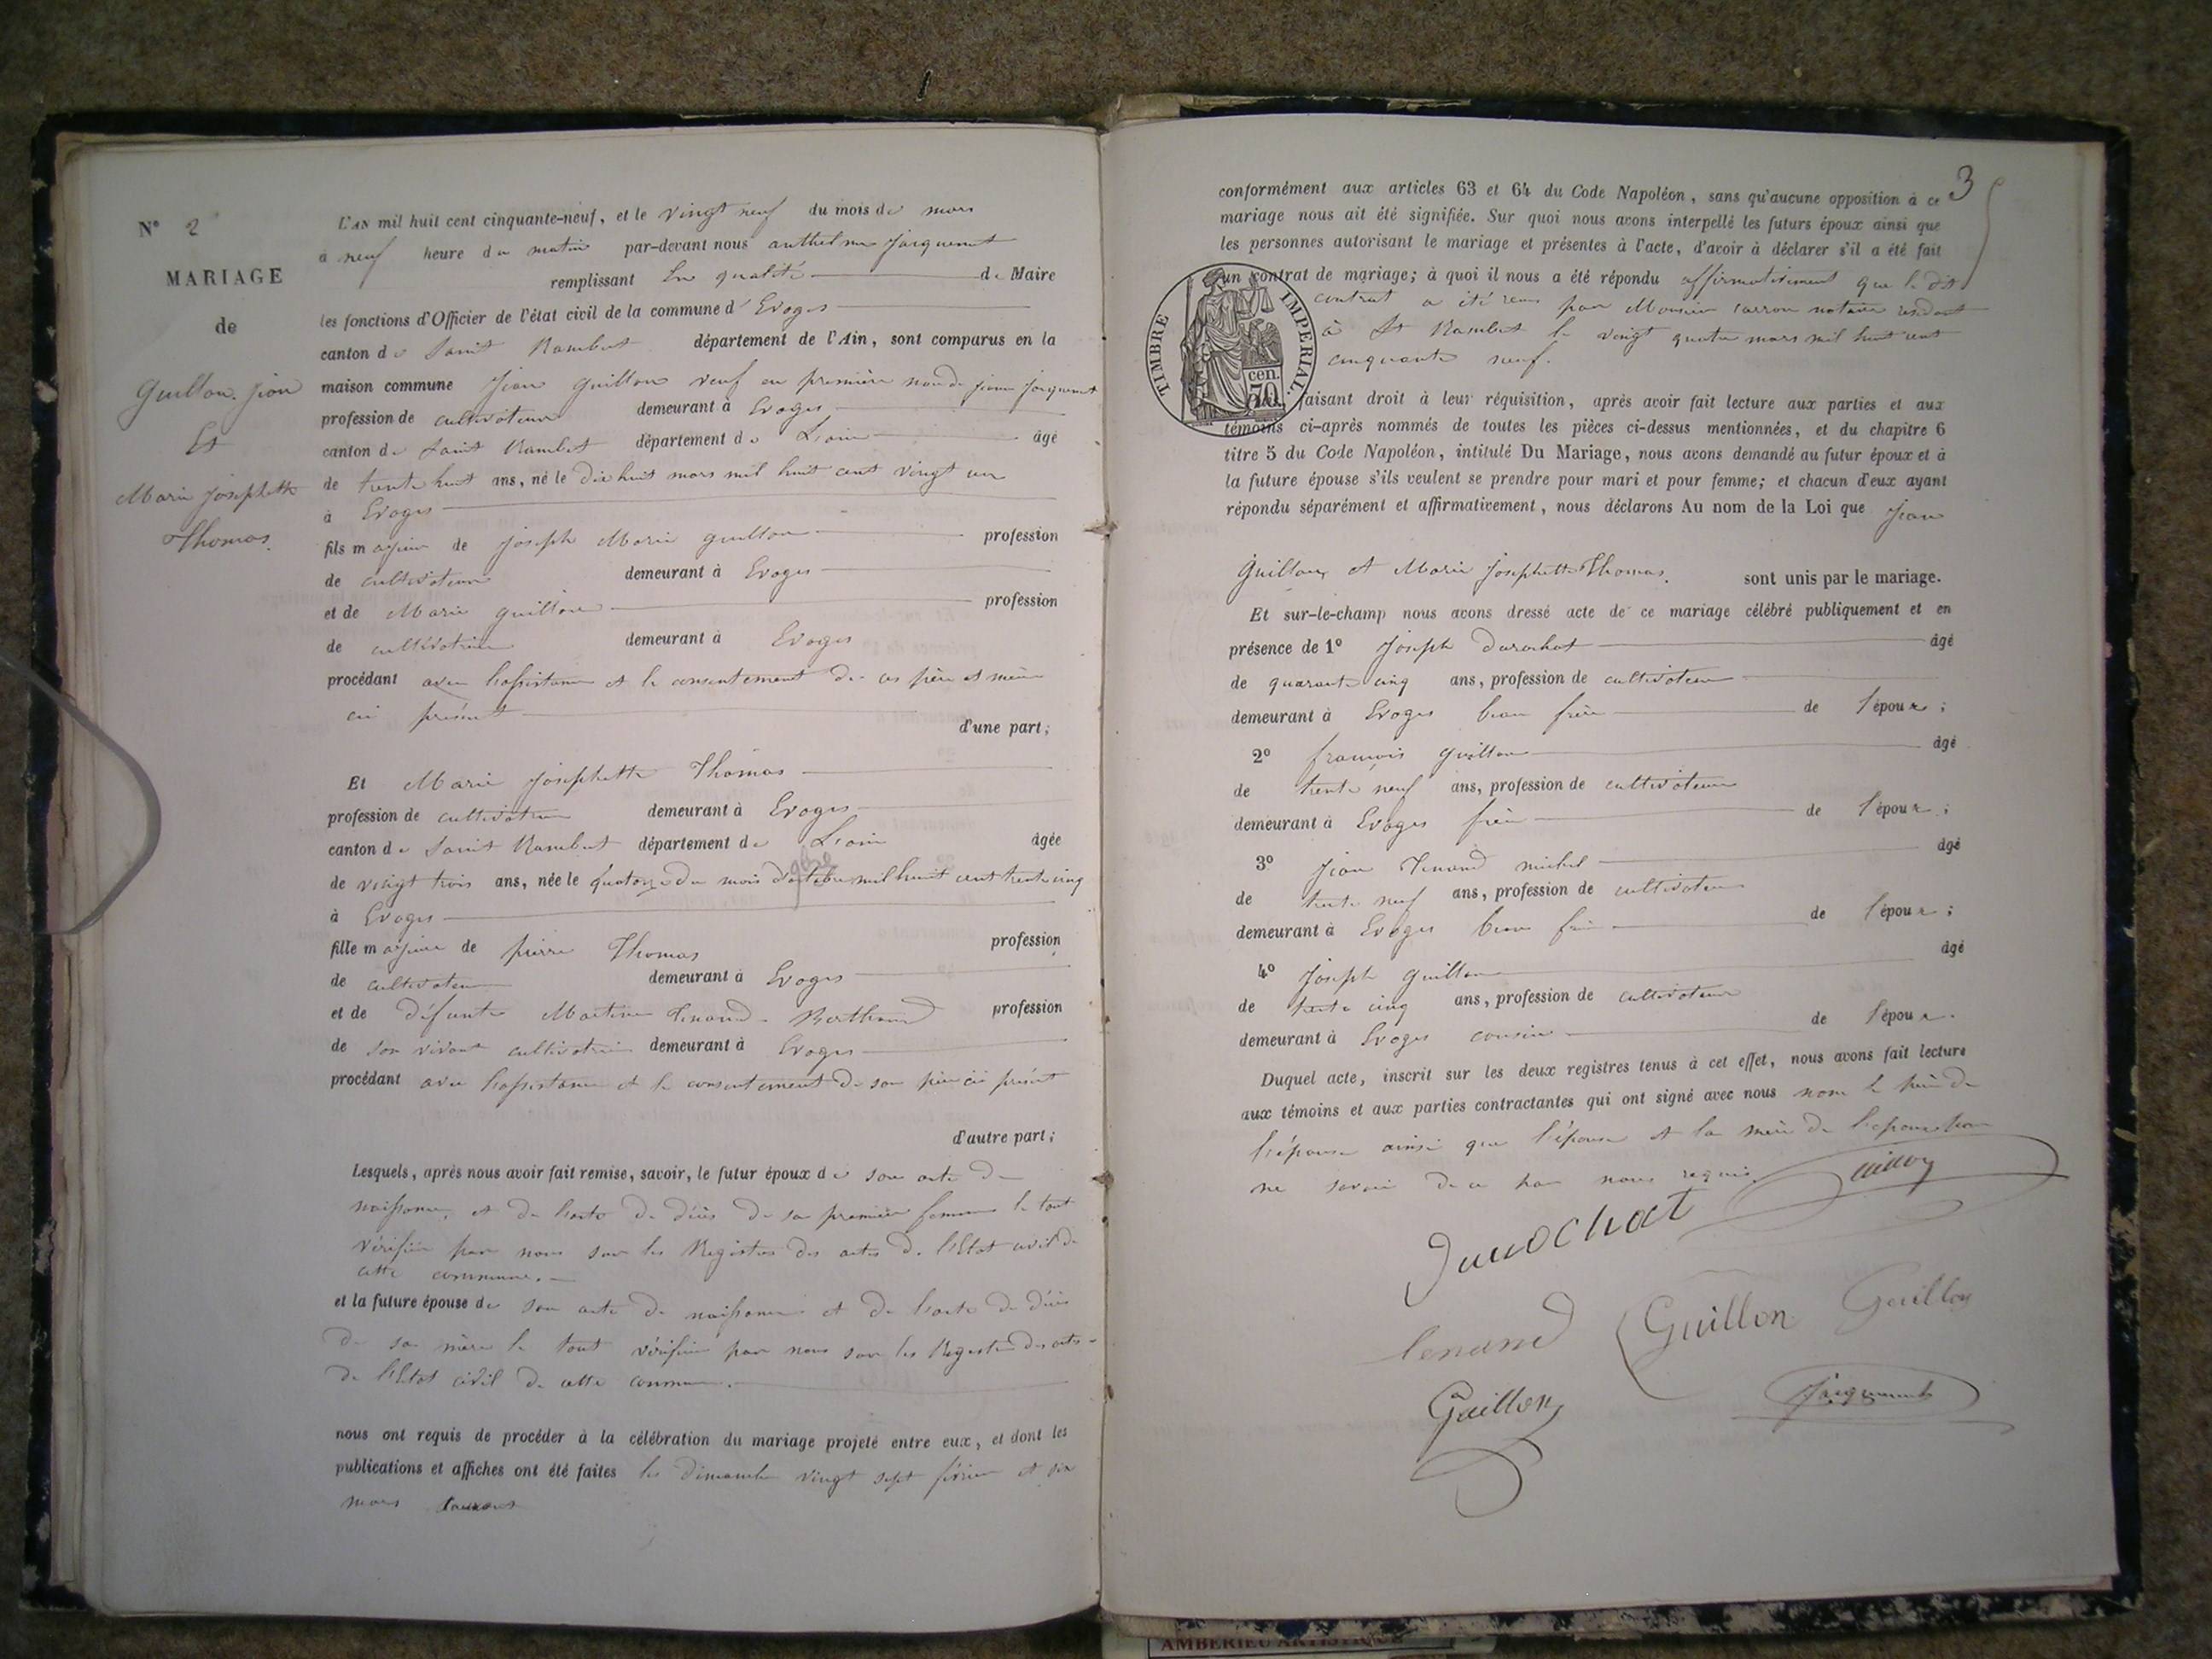 N° 2
MARIAGE
de
Guillon. jean
Et
Marie josephette
Thomas.
L'AN mil huit cent cinquante-neuf, et le vingt neuf du mois de mars
à neuf heure du matin par-devant nous anthelme jacquemet
remplissant En qualité de Maire
les fonctions d'Officier de l'état civil de la commune d'Evoges
canton de Saint Rambert département de l'Ain, sont comparus en la
maison commune jean guillon veuf en première de jeanne jacquemet
profession de cultivateur demeurant à Evoges
canton de Saint Rambert département de L'ain âgé
de trente huit ans, né le dix huit mars mil huit cent vingt un
à Evoges
fils majeur de joseph Marie guillon profession
de cultivateur demeurant à Evoges
et de Marie guillon profession
de cultivatrice demeurant à Evoges
procédant avec l'assistance et le consentement de ses père et mère
ici présent
d'une part;
Et Marie josephette Thomas
profession de cultivatrice demeurant à Evoges
canton de Saint Rambert département de L'ain âgée
9bre
de vingt trois ans, née le quatorze du mois d'octobre mil huit cent trente cinq
à Evoges
fille majeure de pierre Thomas profession
de cultivateur demeurant à Evoges
et de défunte Martine Tenand-Berthand profession
de son vivant cultivatrice demeurant à Evoges
procédant avec l'assistance et le consentement de son père ici présent
d'autre part;
Lesquels, après nous avoir fait remise, savoir, le futur époux de son acte de
naissance, et de l'acte de décès de sa première femme le tout
vérifié par nous sur les Registres des actes de l'Etat civil de
cette commune.
et la future épouse de son acte de naissance et de l'acte de décès
de sa mère le tout vérifié par nous sur les Registres des actes
de l'Etat civil de cette commune.
nous ont requis de procéder à la célébration du mariage projeté entre eux, et dont les
publications et affiches ont été faites les dimanche vingt sept février et six
mars
3
conformément aux articles 63 et 64 du Code Napoléon, sans qu'aucune opposition à ce
mariage nous ait été signifiée. Sur quoi nous avons interpellé les futurs époux ainsi que
les personnes autorisant le mariage et présentes à l'acte, d'avoir à déclarer s'il a été fait
un contrat de mariage; à quoi il nous a été répondu affirmativement que le dit
contrat a été reçu par Monsieur carron notaire résidant
à St Rambert le vingt quatre mars mil huit cent
cinquante neuf.
TIMBRE IMPÉRIAL.
cen.
70.
faisant droit à leur réquisition, après avoir fait lecture aux parties et aux
témoins ci-après nommés de toutes les pièces ci-dessus mentionnées, et du chapitre 6
titre 5 du Code Napoléon, intitulé Du Mariage, nous avons demandé au futur époux et à
la future épouse s'ils veulent se prendre pour mari et pour femme; et chacun d'eux ayant
répondu séparément et affirmativement, nous déclarons Au nom de la Loi que jean
guillon et Marie josephette Thomas. sont unis par le mariage.
Et sur-le-champ nous avons dressé acte de ce mariage célébré publiquement et en
présence de 1° joseph Durochat âgé
de quarante cinq ans, profession de cultivateur
demeurant à Evoges beau frère de l'époux;
2° françois guillon âgé
de trente neuf ans, profession de cultivateur
demeurant à Evoges frère de l'époux;
3° jean Tenand michel âgé
de trente neuf ans, profession de cultivateur
demeurant à Evoges beau frère de l'époux;
4° joseph guillon âgé
de trente cinq ans, profession de cultivateur
demeurant à Evoges cousin de l'époux.
Duquel acte, inscrit sur les deux registres tenus à cet effet, nous avons fait lecture
aux témoins et aux parties contractantes qui ont signé avec nous non le père de
l'épouse ainsi que l'épouse et la mère de l'époux pour
ne savoir de ce par nous requis
Guillon
Durochat
tenand Guillon Guillon
Guillon Jacquemet
AMBERIEU ARTISTIQUE